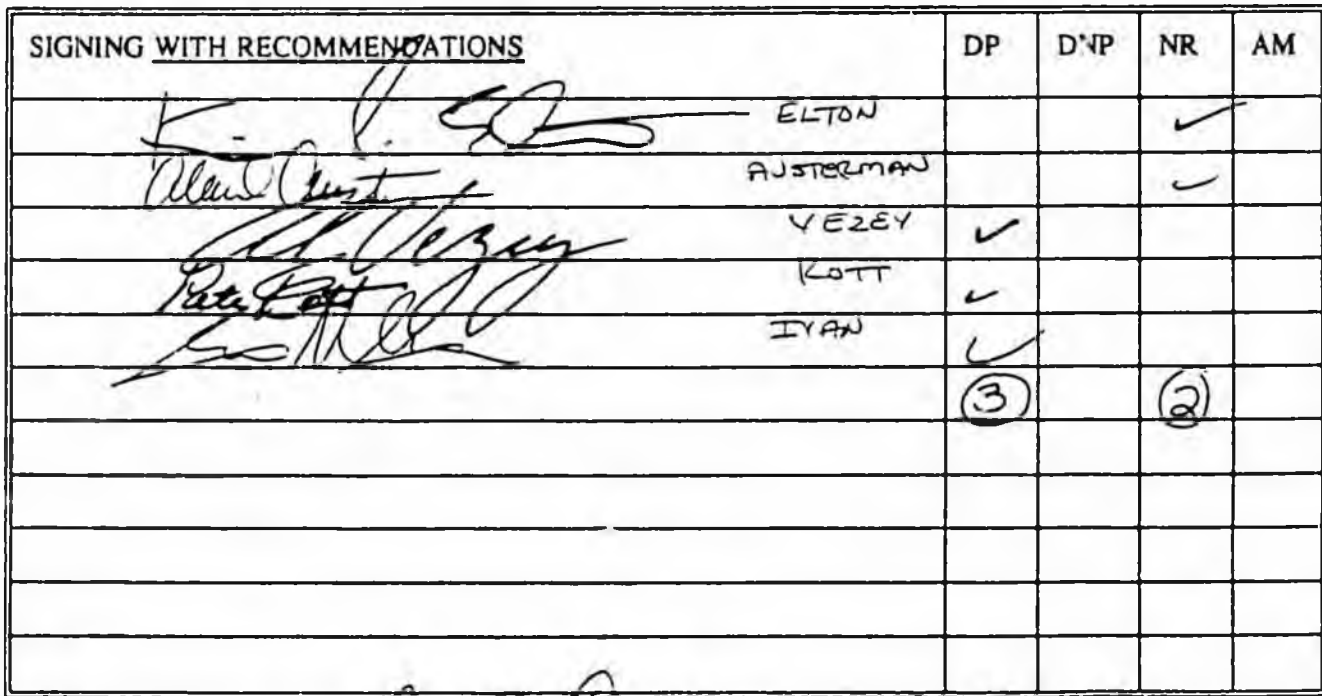 SIGNING WITH RECOMMENDATIONS DP DNP NR AM
ELTON ✓
Alan Aust AUSTERMAN ✓
Al Vezey VEZEY ✓
Pete Kott KOTT ✓
IVAN ✓
3 2